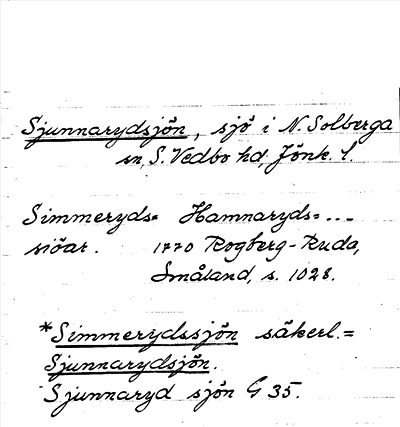 Sjunnarydsjön, sjö i N. Solberga
sn, S. Vedbo hd, Jönk. l.
Simmeryds= Hamnaryds= ...
siöar. 1770 Rogberg-Ruda,
Småland, s. 1028.
*Simmerydssjön säkerl. =
Sjunnarydsjön.
Sjunnaryd sjön G 35.